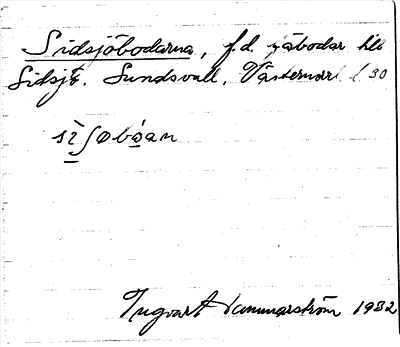 Sidsjöbodarna, f.d. fäbodar hlö
Sidsj. Sundsvall. Västernorrl. l 30
sìʃøbo̱an
Ingvart Hammarström 1932